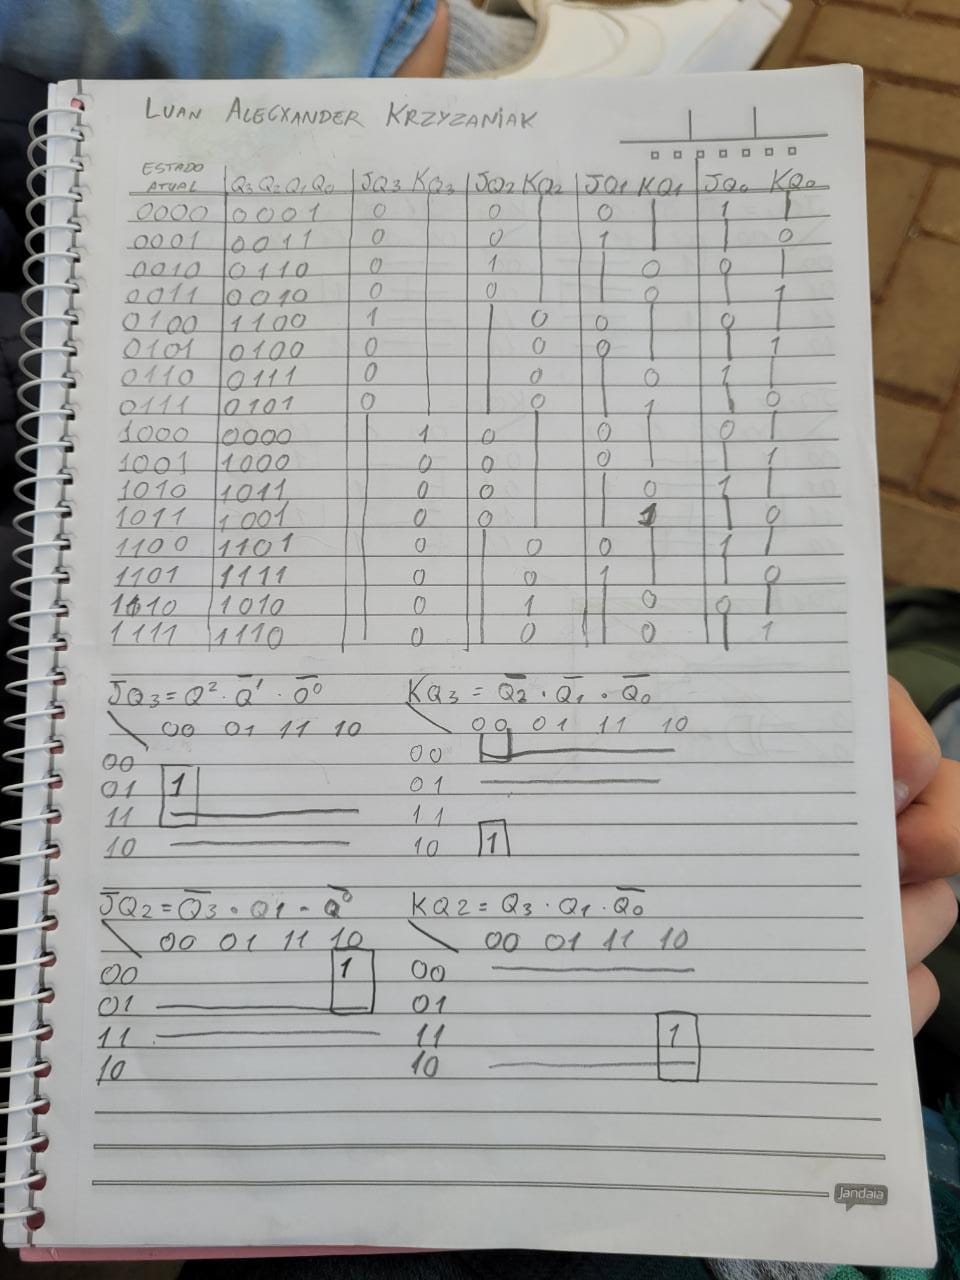 LUAN ALECXANDER KRZYZANIAK
ESTADO ATUAL Q3 Q2 Q1 Q0 JQ3 KQ3 JQ2 KQ2 JQ1 KQ1 JQ0 KQ0
0000 0001 0 | 0 | 0 | 1 |
0001 0011 0 | 0 | 1 | | 0
0010 0110 0 | 1 | | 0 0 |
0011 0010 0 | 0 | | 0 | 1
0100 1100 1 | | 0 0 | 0 |
0101 0100 0 | | 0 0 | | 1
0110 0111 0 | | 0 | 0 1 |
0111 0101 0 | | 0 | 1 | 0
1000 0000 | 1 0 | 0 | 0 |
1001 1000 | 0 0 | 0 | | 1
1010 1011 | 0 0 | | 0 1 |
1011 1001 | 0 0 | | 1 | 0
1100 1101 | 0 | 0 0 | 1 |
1101 1111 | 0 | 0 1 | | 0
1110 1010 | 0 | 1 | 0 0 |
1111 1110 | 0 | 0 | 0 | 1
JQ3 = Q² · Q̅¹ · Q̅⁰ KQ3 = Q̅2 · Q̅1 · Q̅0
\ 00 01 11 10 \ 00 01 11 10
00 00
01 1 01
11 11
10 10 1
JQ2 = Q̅3 · Q1 · Q̅⁰ KQ2 = Q3 · Q1 · Q̅0
\ 00 01 11 10 \ 00 01 11 10
00 1 00
01 01
11 11 1
10 10
Jandaia